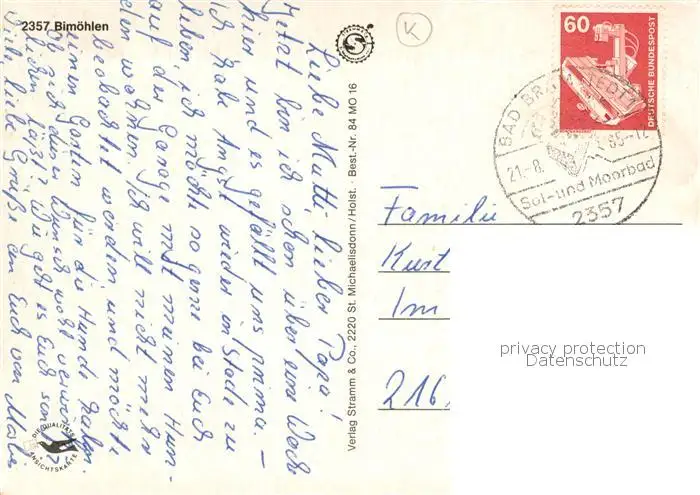 2357 Bimöhlen
Liebe Mutti, lieber Papa!
Jetzt bin ich schon über eine Woche
hier und es gefällt uns prima. –
Ich habe Angst wieder in Stade zu
leben ich möchte so gerne bei Euch
auf der Garage mit meinen Hun-
den wohnen. Ich will nicht mehr
beobachtet werden, und möchte
einen Garten für die Hunde haben.
Ob sich dieser Wunsch wohl verwirk-
lichen läßt? Wie geht es Euch so
Viele liebe Grüße an Euch von
DIE QUALITÄTS
ANSICHTSKARTE
Verlag Stramm & Co., 2220 St. Michaelisdonn/Holst. · Best.-Nr. 84 MO 16
S
K
60
DEUTSCHE BUNDESPOST
BAD BRAMSTEDT
21.-8. 85-12
Sol- und Moorbad
2357
Familie
Kurt
Im
216
privacy protection
Datenschutz